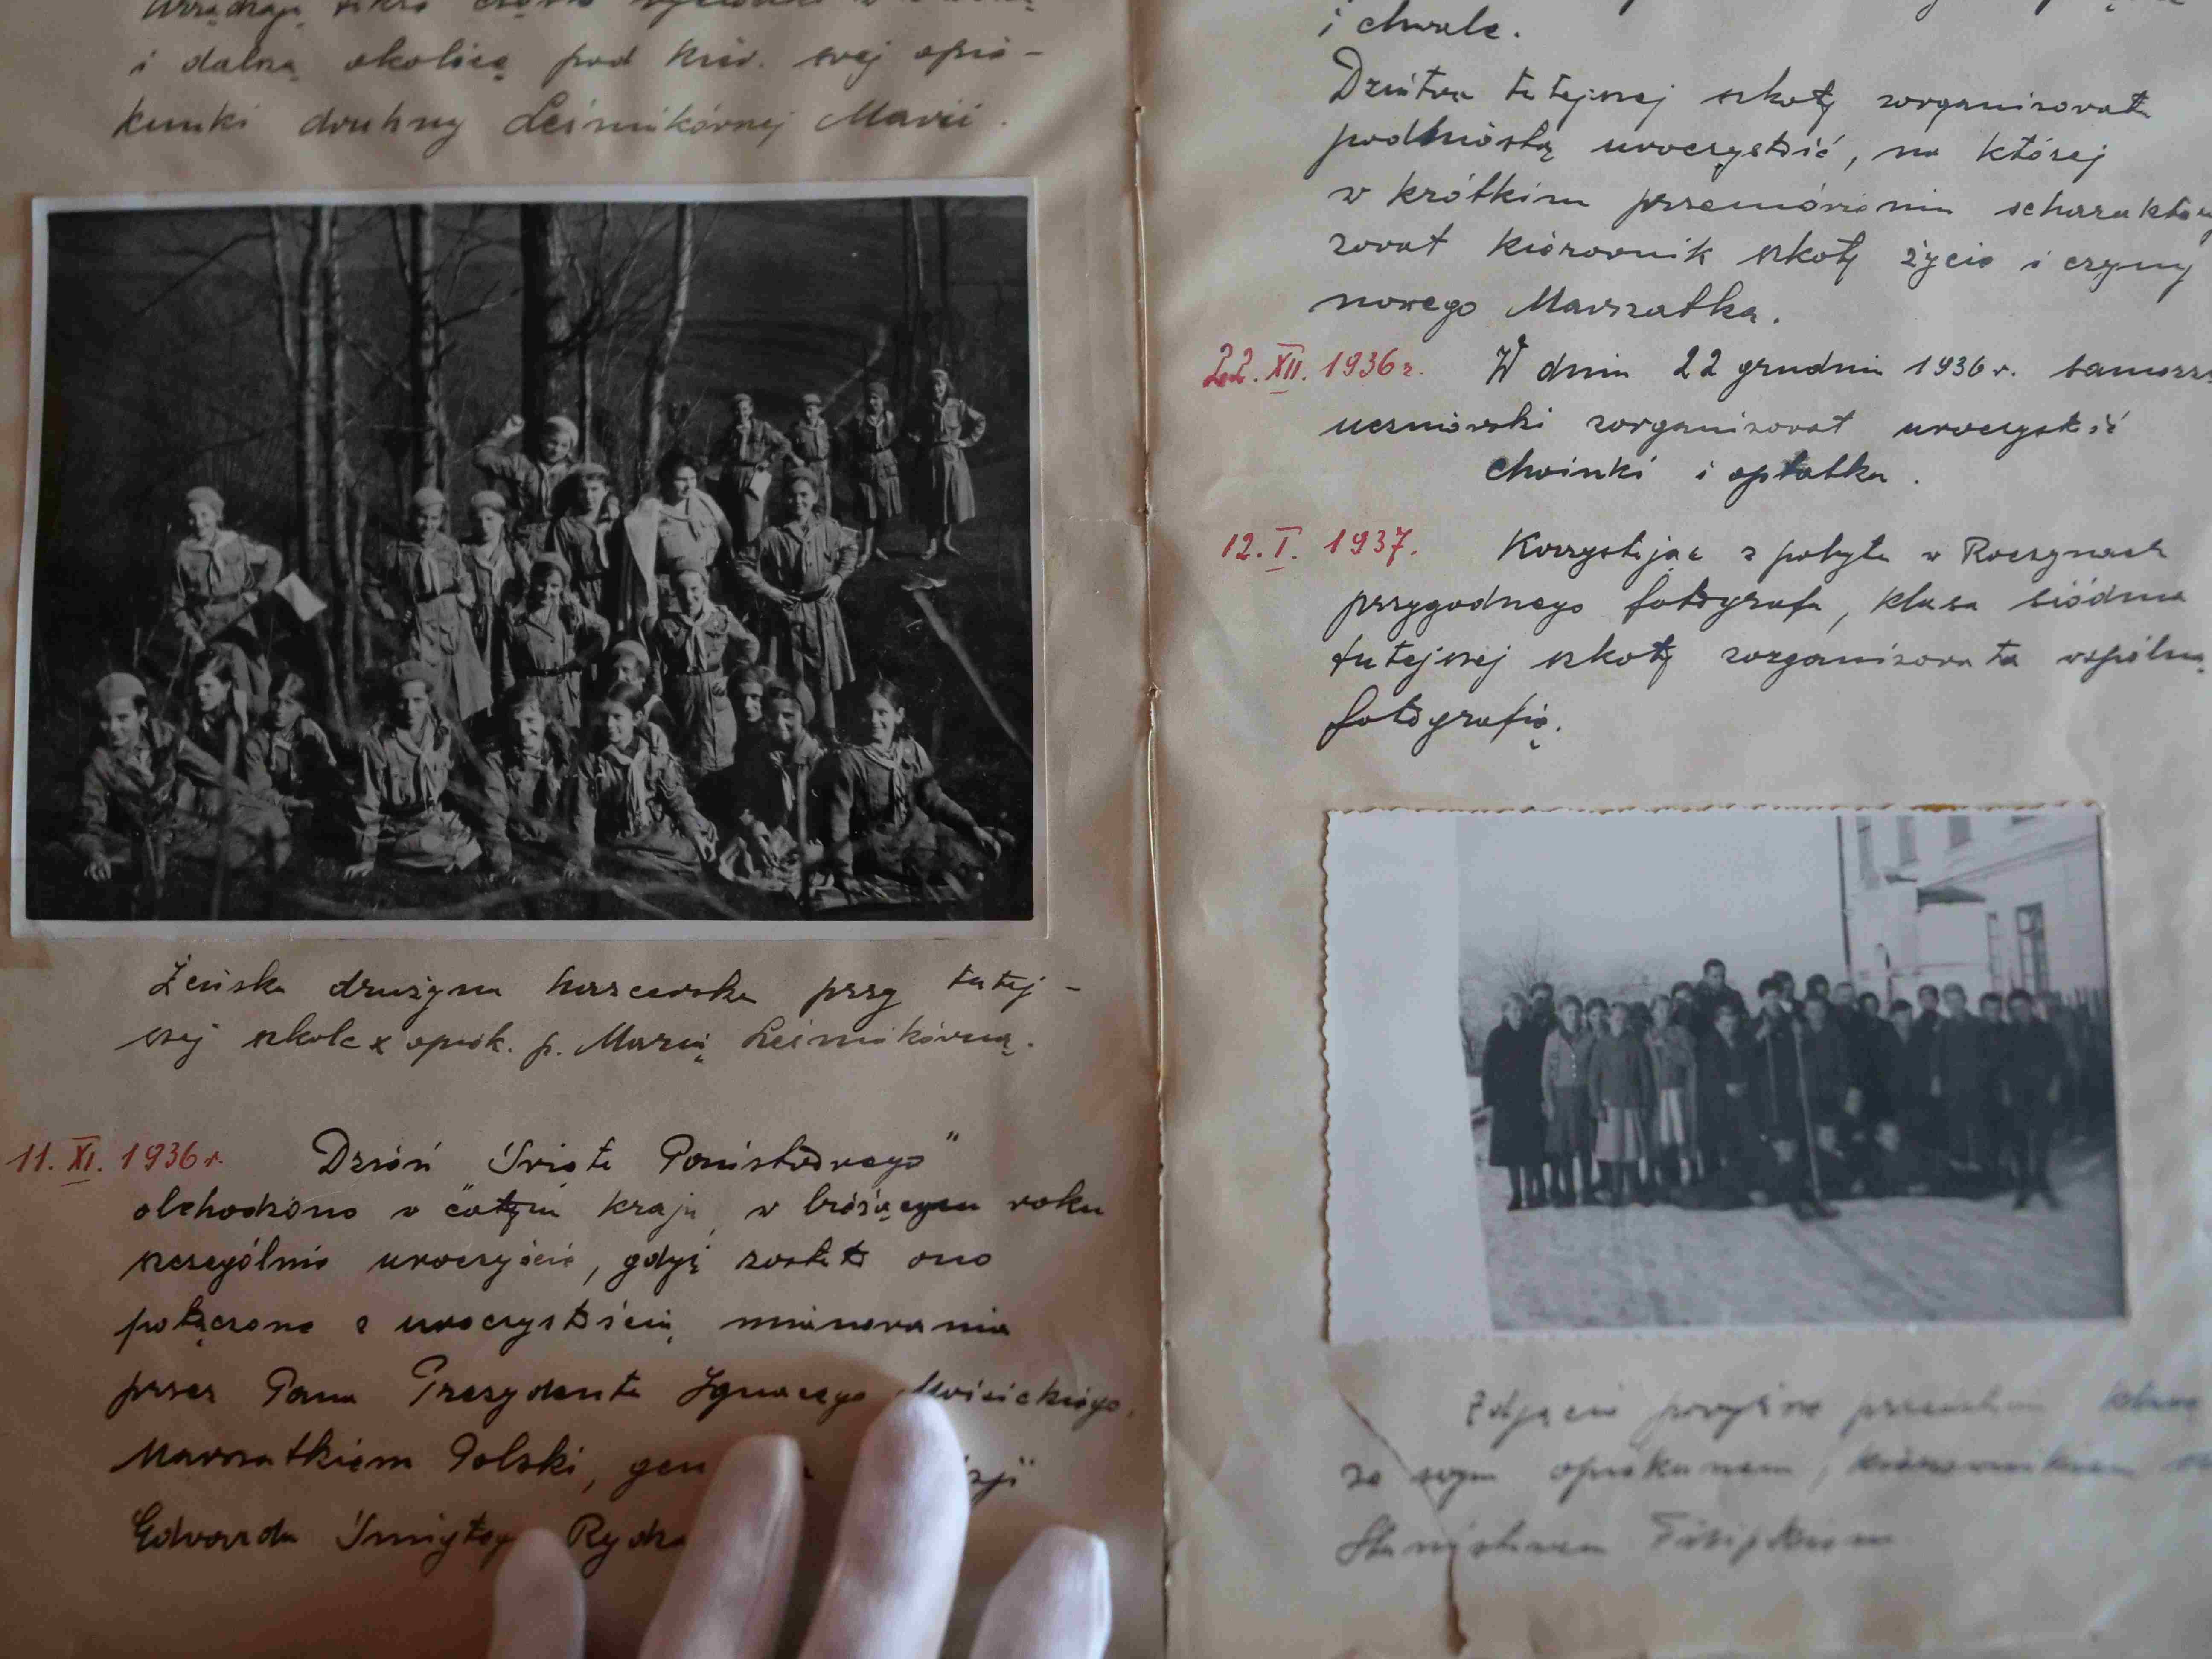 i dalszą okolicę pod kier. swej opie-
kunki druhny Leśnikównej Marii.
Żeńska drużyna harcerska przy tutej-
szej szkole z opiek. p. Marią Leśnikówną.
11. XI. 1936 r. Dzień Święta Państwowego"
obchodzono w całym kraju w bieżącym roku
szczególnie uroczyście, gdyż zostało ono
połączone z uroczystością mianowania
przez Pana Prezydenta Ignacego Mościckiego,
Marszałkiem Polski, gen
Edwarda Śmigłego Rydza
i chwale.
Dziatwa tutejszej szkoły zorganizowała
podniosłą uroczystość, na której
w krótkim przemówieniu scharaktery
zował kierownik szkoły życie i czyny
nowego Marszałka.
22. XII. 1936 r. W dniu 22 grudnia 1936 r. samorz
uczniowski zorganizował uroczystość
choinki i opłatka.
12. I. 1937. Korzystając z pobytu w Roczynach
przygodnego fotografa, klasa siódma
tutejszej szkoły zorganizowała wspólną
fotografię.
Zdjęcie powyższe przedstawia klasę
ze swym opiekunem, kierownikiem
Stanisławem